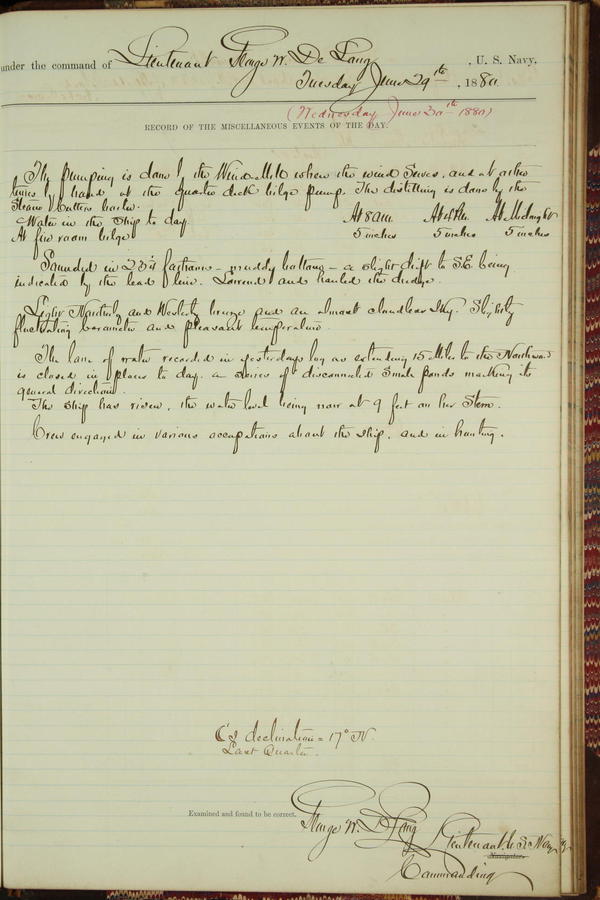 under the command of Lieutenant George W. De Long, U. S. Navy.
Tuesday June 29th, 1880.
(Wednesday June 30th 1880)
RECORD OF THE MISCELLANEOUS EVENTS OF THE DAY.
The pumping is done by the Windmill when the wind serves, and at other
times by hand at the quarter deck bilge pump. The distilling is done by the
Steam Cutters boiler.
Water in the Ship to day. At 8 am At 4 Pm At Midnight
At fire room bilge 5 inches 5 inches 5 inches
Sounded in 23½ fathoms - muddy bottom - a slight drift to S.E. being
indicated by the lead line. Lowered and hauled the dredge.
Light Northerly and Westerly breeze and an almost cloudless sky. Slightly
fluctuating barometer and pleasant temperature.
The lane of water recorded in yesterdays log as extending 15 Miles to the Northward
is closed in places to day. a series of disconnected Small ponds marking its
general direction.
The Ship has risen, the water level being now at 9 feet on her Stem.
Crew engaged in various occupations about the ship, and in hunting.
☾'s declination = 17° N.
Last Quarter.
Examined and found to be correct.
George W. De Long Lieutenant U.S. Navy
Navigator.
Commanding